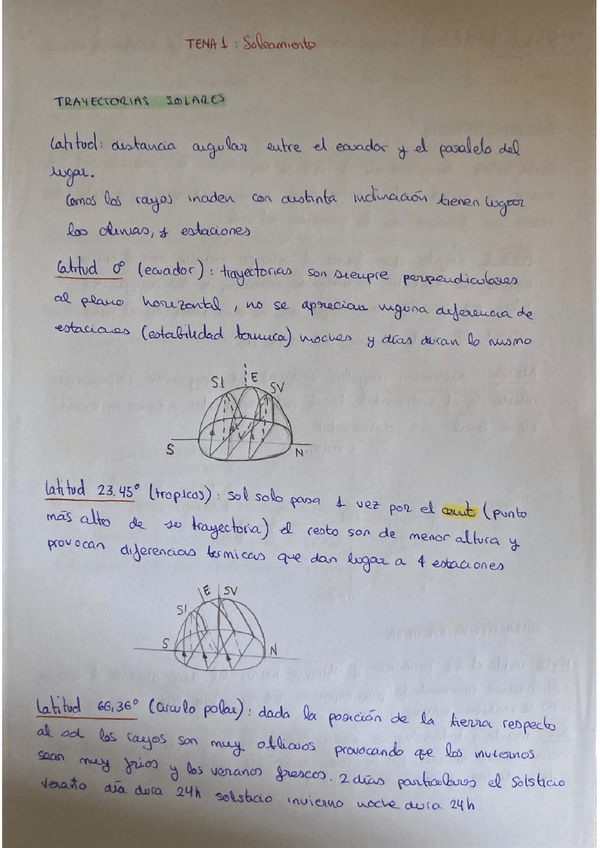 TEMA 1 : Soleamiento
TRAYECTORIAS SOLARES
Latitud: distancia angular entre el ecuador y el paralelo del
lugar.
Como los rayos inciden con distinta inclinación tienen lugar
los climas, y estaciones
Latitud 0° (ecuador): trayectorias son siempre perpendiculares
al plano horizontal, no se aprecian niguna diferencia de
estaciones (estabilidad termica) noches y días duran lo mismo
SI E SV
S N
Latitud 23,45° (tropicos): sol solo pasa 1 vez por el cenit (punto
más alto de su trayectoria) el resto son de menor altura y
provocan diferencias termicas que dan lugar a 4 estaciones
SI E SV
S N
Latitud 66,36° (circulo polar): dada la posición de la tierra respecto
al sol los rayos son muy oblicuos provocando que los inviernos
sean muy frios y los veranos frescos. 2 días particulares el Solsticio
verano día dura 24h solsticio invierno noche dura 24h